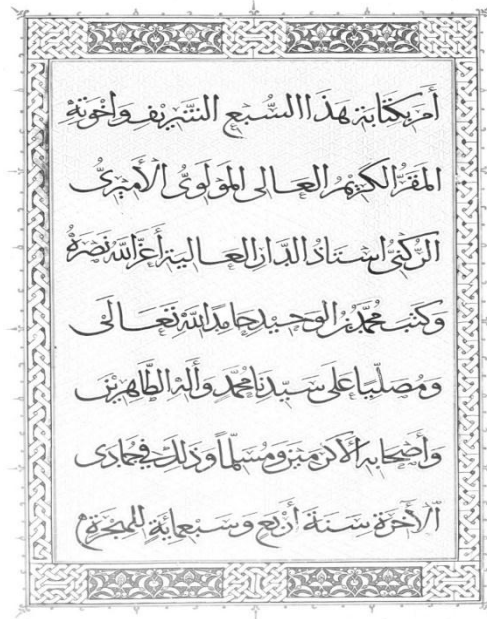 أمر بكتابة هذا السُّبع الشريف وأخوته
المقرّ الكريم العالى المولوىّ الأميرىّ
الركنىّ استاذ الدّار العالية أعزّ الله نصرهُ
وكتب محمّد بن الوحيد حامداً لله تعالى
ومصلّيا على سيّدنا محمّد وأله الطّاهرين
وأصحابه الأكرمين ومسلّماً وذلك فى جمادى
الأخرة سنة أربع وسبعماية للهجرة